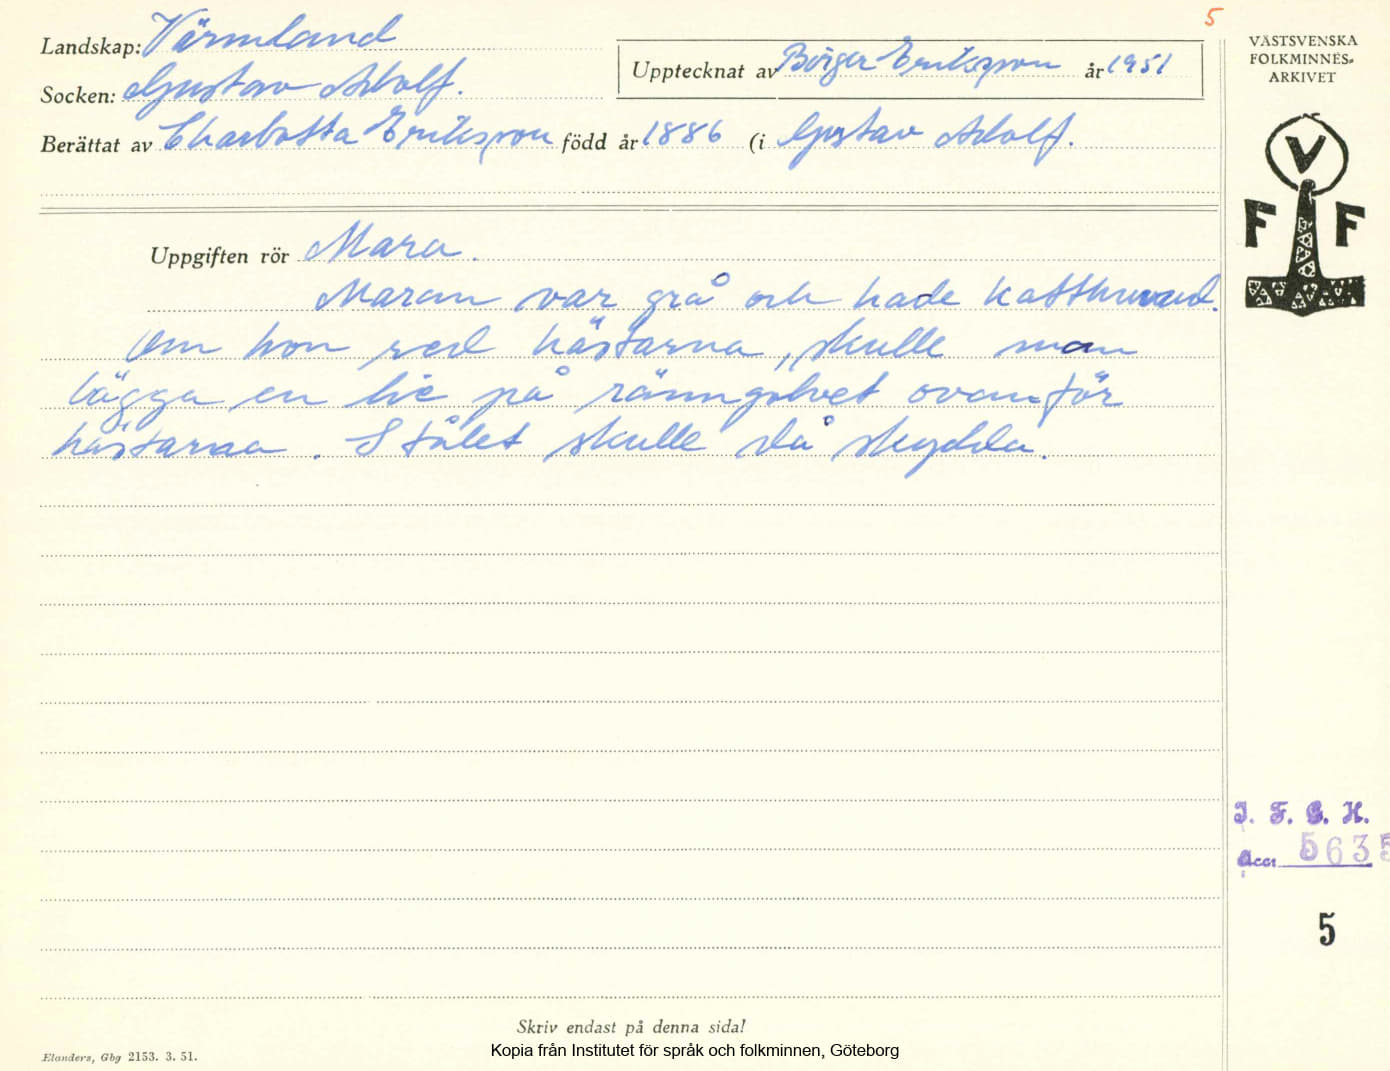 5
Landskap: Värmland
Socken: Gustav Adolf.
Upptecknat av Börger Eriksson år 1951
Berättat av Charlotta Eriksson född år 1886 (i Gustav Adolf.
Uppgiften rör Mara.
Maran var grå och hade katthuvud.
Om hon red hästarna, skulle man
lägga en lie på ränngolvet ovanför
hästarna. Stålet skulle då skydda.
Skriv endast på denna sida!
Elanders, Gbg 2153. 3. 51.
Kopia från Institutet för språk och folkminnen, Göteborg
VÄSTSVENSKA
FOLKMINNES-
ARKIVET
V
F F
I. F. G. H.
acc: 5635
5